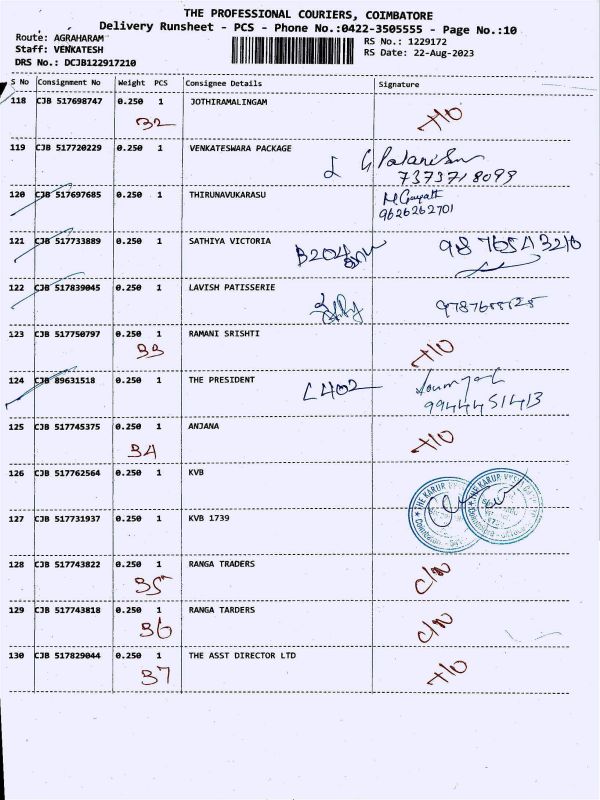 THE PROFESSIONAL COURIERS, COIMBATORE
Delivery Runsheet - PCS - Phone No.:0422-3505555 - Page No.:10
Route: AGRAHARAM
RS No.: 1229172
Staff: VENKATESH
RS Date: 22-Aug-2023
DRS No.: DCJB122917210
S No Consignment No Weight PCS Consignee Details Signature
118 CJB 517698747 0.250 1 JOTHIRAMALINGAM
32
119 CJB 517720229 0.250 1 VENKATESWARA PACKAGE
7373718099
120 CJB 517697685 0.250 1 THIRUNAVUKARASU
9626262701
121 CJB 517733889 0.250 1 SATHIYA VICTORIA
B204 9876543210
122 CJB 517839045 0.250 1 LAVISH PATISSERIE
123 CJB 517750797 0.250 1 RAMANI SRISHTI
33
124 CJB 89631518 0.250 1 THE PRESIDENT
L402
9944451413
125 CJB 517745375 0.250 1 ANJANA
34
126 CJB 517762564 0.250 1 KVB
THE KARUR
127 CJB 517731937 0.250 1 KVB 1739
128 CJB 517743822 0.250 1 RANGA TRADERS
35 C/N
129 CJB 517743818 0.250 1 RANGA TARDERS
36 C/N
130 CJB 517829044 0.250 1 THE ASST DIRECTOR LTD
37